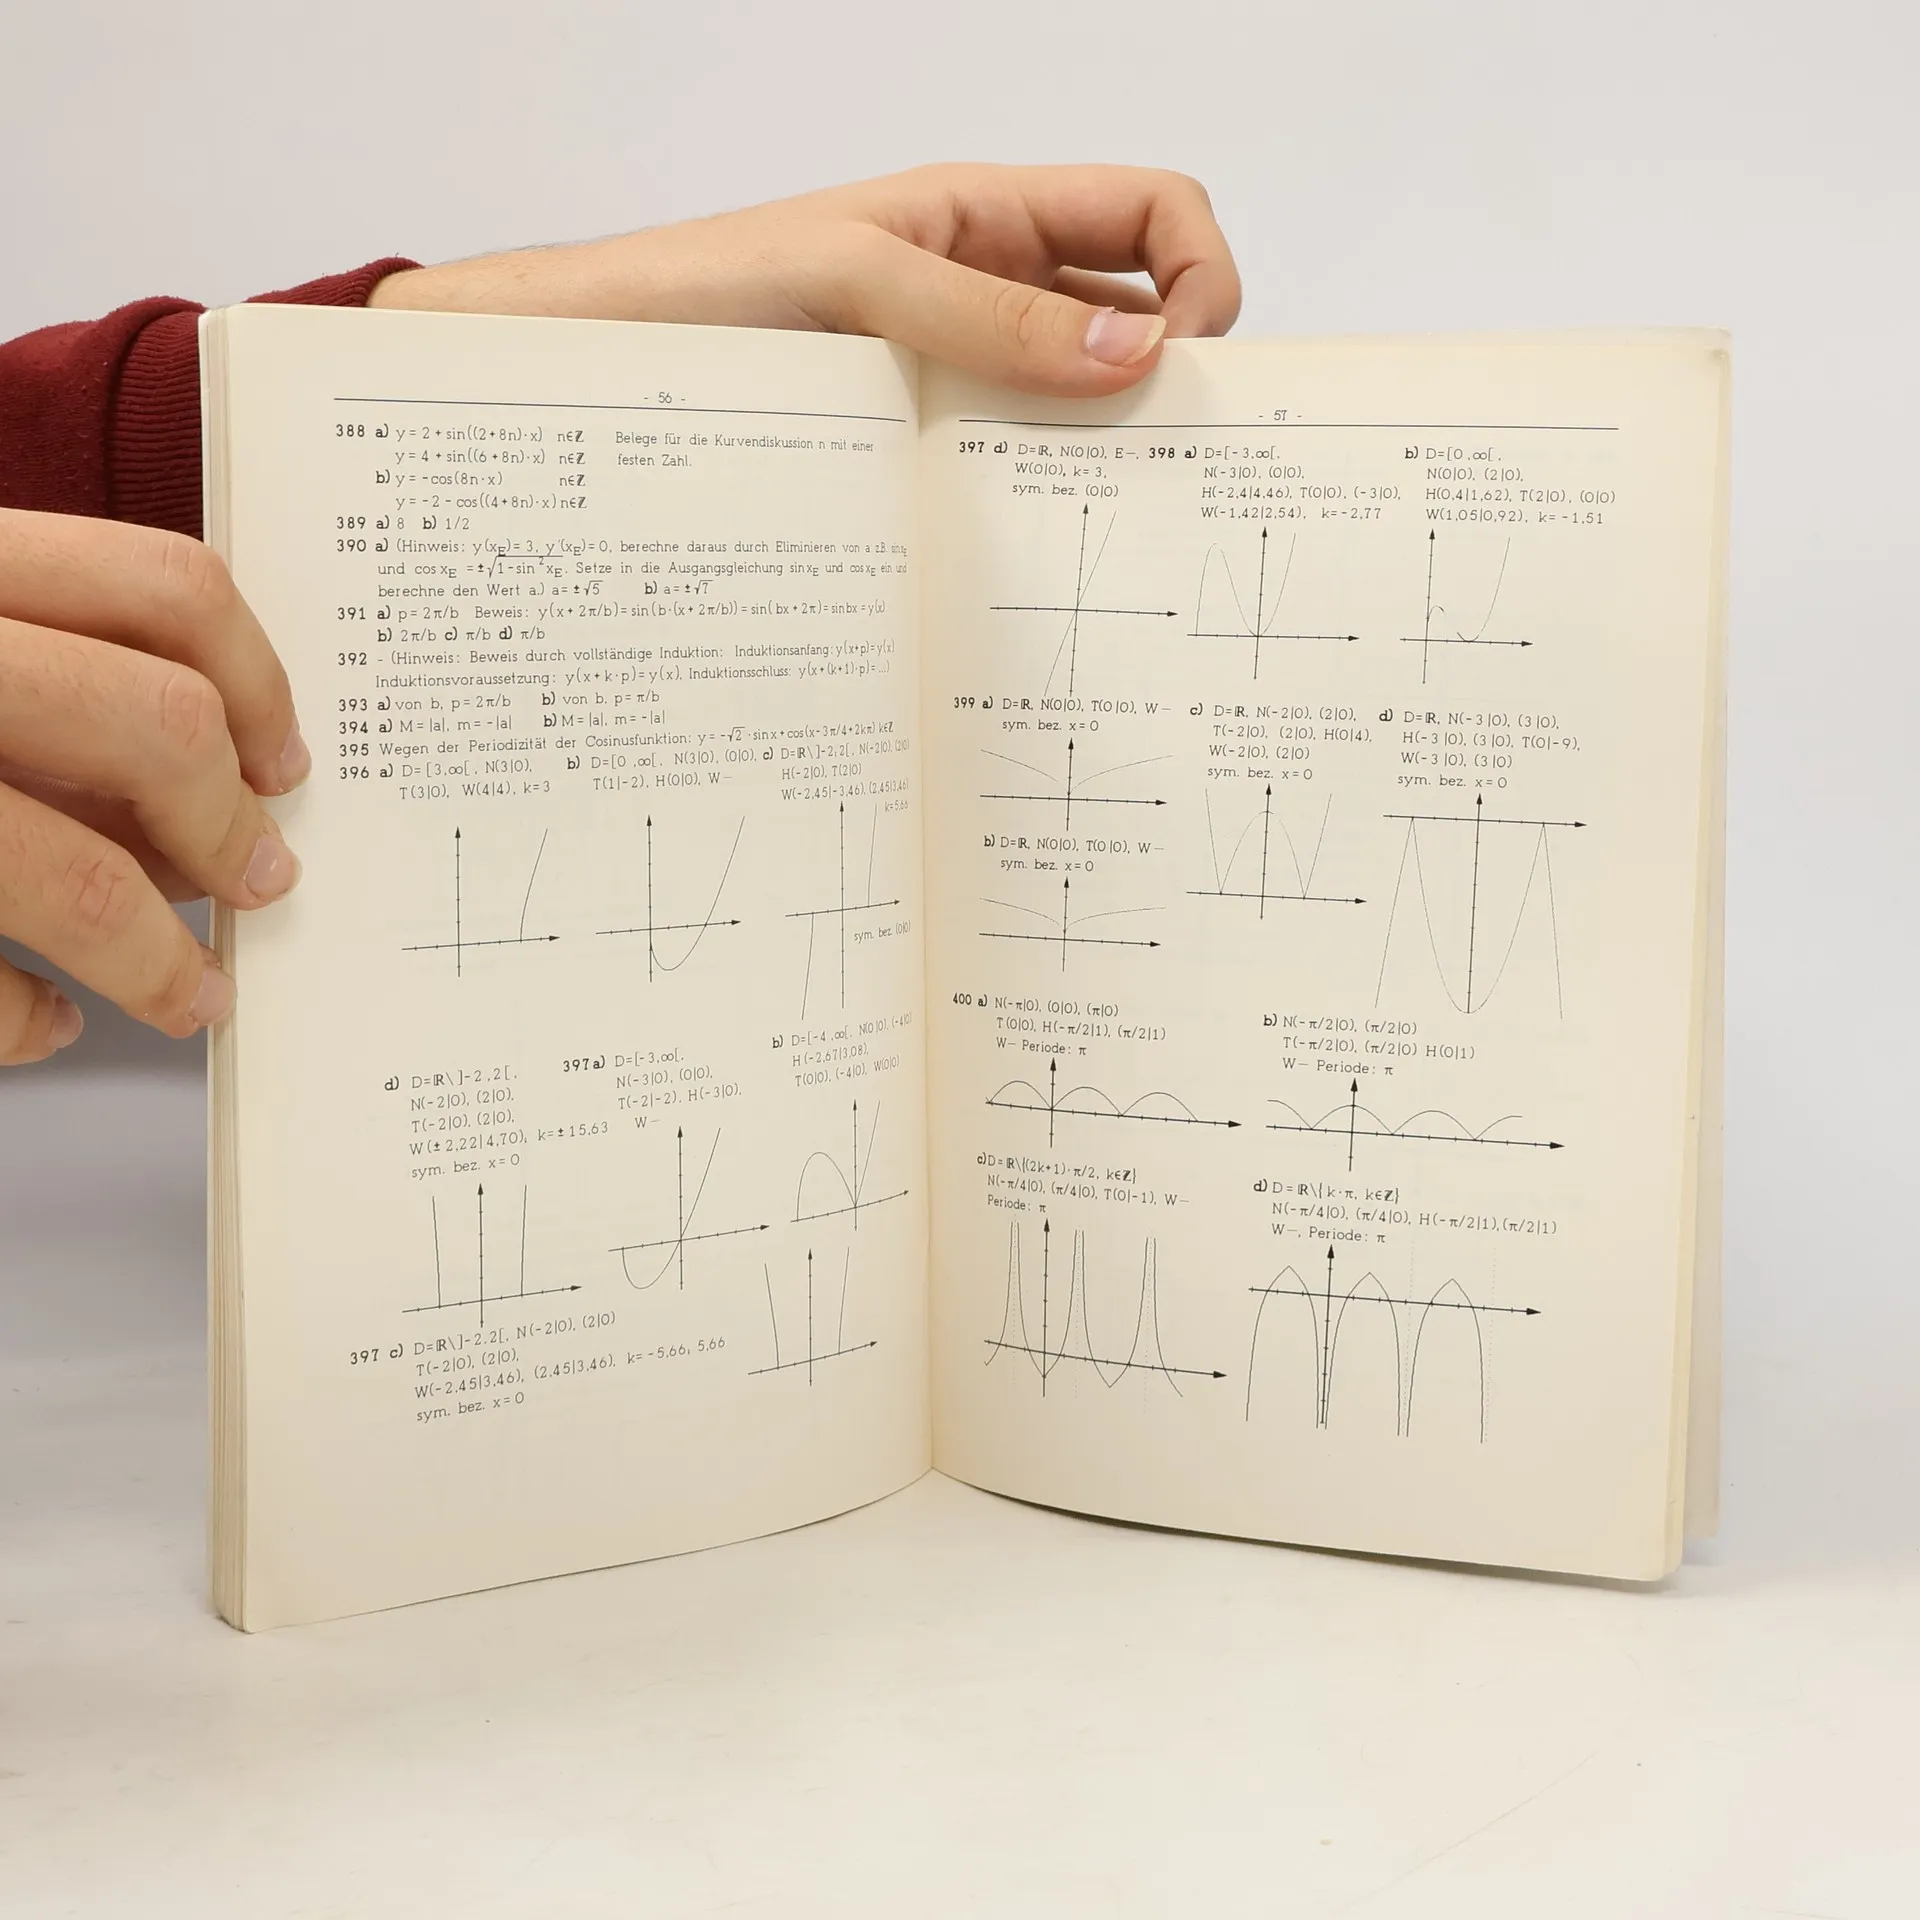 - 56 -
388 a) y = 2 + sin((2+8n)·x) n∈ℤ Belege für die Kurvendiskussion n mit einer
y = 4 + sin((6+8n)·x) n∈ℤ festen Zahl.
b) y = -cos(8n·x) n∈ℤ
y = -2 - cos((4+8n)·x) n∈ℤ
389 a) 8 b) 1/2
390 a) (Hinweis: y(x_E)= 3, y'(x_E)= 0, berechne daraus durch Eliminieren von a z.B. sin x_E
und cos x_E = ±√(1-sin²x_E). Setze in die Ausgangsgleichung sin x_E und cos x_E ein und
berechne den Wert a.) a= ±√5 b) a= ±√7
391 a) p = 2π/b Beweis: y(x+2π/b) = sin(b·(x+2π/b)) = sin(bx+2π) = sin bx = y(x)
b) 2π/b c) π/b d) π/b
392 - (Hinweis: Beweis durch vollständige Induktion: Induktionsanfang: y(x+p)=y(x)
Induktionsvoraussetzung: y(x+k·p)=y(x), Induktionsschluss: y(x+(k+1)·p)=...)
393 a) von b, p= 2π/b b) von b, p= π/b
394 a) M = |a|, m = -|a| b) M = |a|, m = -|a|
395 Wegen der Periodizität der Cosinusfunktion: y = -√2·sin x + cos(x-3π/4+2kπ) k∈ℤ
396 a) D= [3,∞[, N(3|0),
T(3|0), W(4|4), k=3
b) D=[0,∞[, N(3|0), (0|0),
T(1|-2), H(0|0), W—
c) D=ℝ\]-2;2[, N(-2|0), (2|0)
H(-2|0), T(2|0)
W(-2,45|-3,46), (2,45|3,46)
k=5,66
sym. bez. (0|0)
d) D=ℝ\]-2,2[,
N(-2|0), (2|0),
T(-2|0), (2|0),
W(±2,22|4,70), k=±15,63
sym. bez. x=0
397 a) D=[-3,∞[,
N(-3|0), (0|0),
T(-2|-2), H(-3|0),
W—
b) D=[-4,∞[, N(0|0), (-4|0)
H(-2,67|3,08),
T(0|0), (-4|0), W(0|0)
397 c) D=ℝ\]-2,2[, N(-2|0), (2|0)
T(-2|0), (2|0),
W(-2,45|3,46), (2,45|3,46), k= -5,66; 5,66
sym. bez. x=0
- 57 -
397 d) D=ℝ, N(0|0), E—,
W(0|0), k=3,
sym. bez. (0|0)
398 a) D=[-3,∞[,
N(-3|0), (0|0),
H(-2,4|4,46), T(0|0), (-3|0),
W(-1,42|2,54), k=-2,77
b) D=[0,∞[,
N(0|0), (2|0),
H(0,4|1,62), T(2|0), (0|0)
W(1,05|0,92), k= -1,51
399 a) D=ℝ, N(0|0), T(0|0), W—
sym. bez. x=0
b) D=ℝ, N(0|0), T(0|0), W—
sym. bez. x=0
c) D=ℝ, N(-2|0), (2|0),
T(-2|0), (2|0), H(0|4),
W(-2|0), (2|0)
sym. bez. x=0
d) D=ℝ, N(-3|0), (3|0),
H(-3|0), (3|0), T(0|-9),
W(-3|0), (3|0)
sym. bez. x=0
400 a) N(-π|0), (0|0), (π|0)
T(0|0), H(-π/2|1), (π/2|1)
W— Periode: π
b) N(-π/2|0), (π/2|0)
T(-π/2|0), (π/2|0) H(0|1)
W— Periode: π
c) D=ℝ\{(2k+1)·π/2, k∈ℤ}
N(-π/4|0), (π/4|0), T(0|-1), W—
Periode: π
d) D=ℝ\{k·π, k∈ℤ}
N(-π/4|0), (π/4|0), H(-π/2|1), (π/2|1)
W—, Periode: π